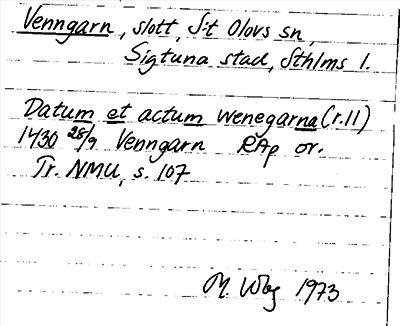 Venngarn, slott, S:t Olovs sn,
Sigtuna stad, Sthlms l.
Datum et actum wenegarna (r.11)
1430 28/9 Venngarn RAp or.
Tr. NMU, s. 107
M. Wbg 1973